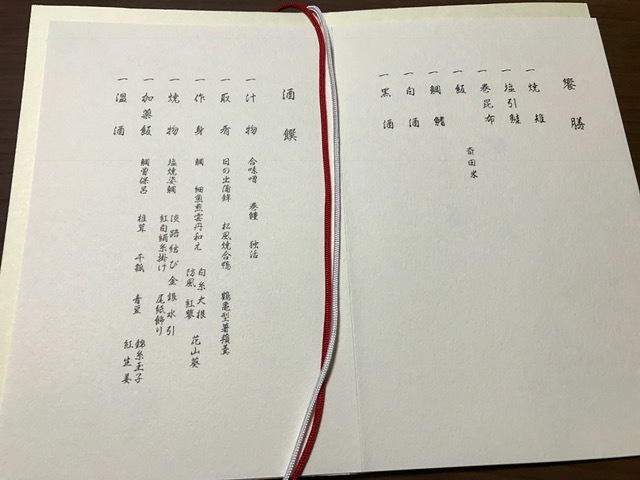 饗膳
一 焼雉
一 塩引鮭
一 巻昆布
一 飯 斎田米
一 鯛鱠
一 白酒
一 黒酒
酒饌
一 汁物 合味噌 巻鱧 独活
一 取肴 日の出蒲鉾 松風焼合鴨 鶴亀型薯蕷羹
一 作身 鯛 細魚煎雲丹和え 白糸大根 花山葵
防風 紅蓼
一 焼物 塩焼姿鯛 淡路結び金銀水引
紅白絹糸掛け 尾紙飾り
一 加薬飯 鯛曽保呂 椎茸 干瓢 青豆 錦糸玉子
紅生姜
一 温酒